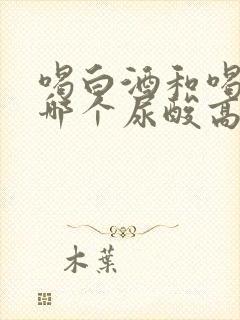 喝白酒和喝
哪个尿酸高
木葉